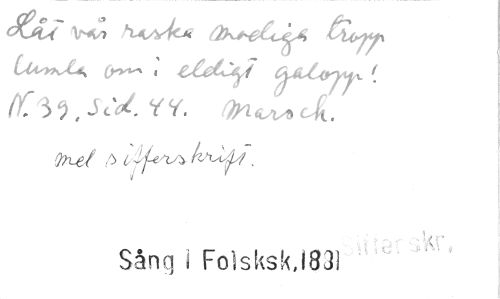 Låt vår raska modiga tropp
tumla om i eldigt galopp!
N. 39, Sid. 44. Marsch.
mel sifferskrift.
Sifferskr.
Sång i Folsksk.1881